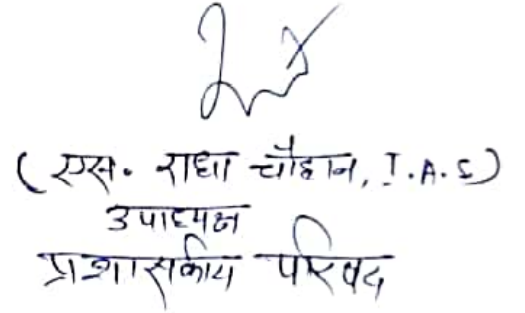 (एस. राधा चौहान, I.A.S)
उपाध्यक्ष
प्रशासकीय परिषद